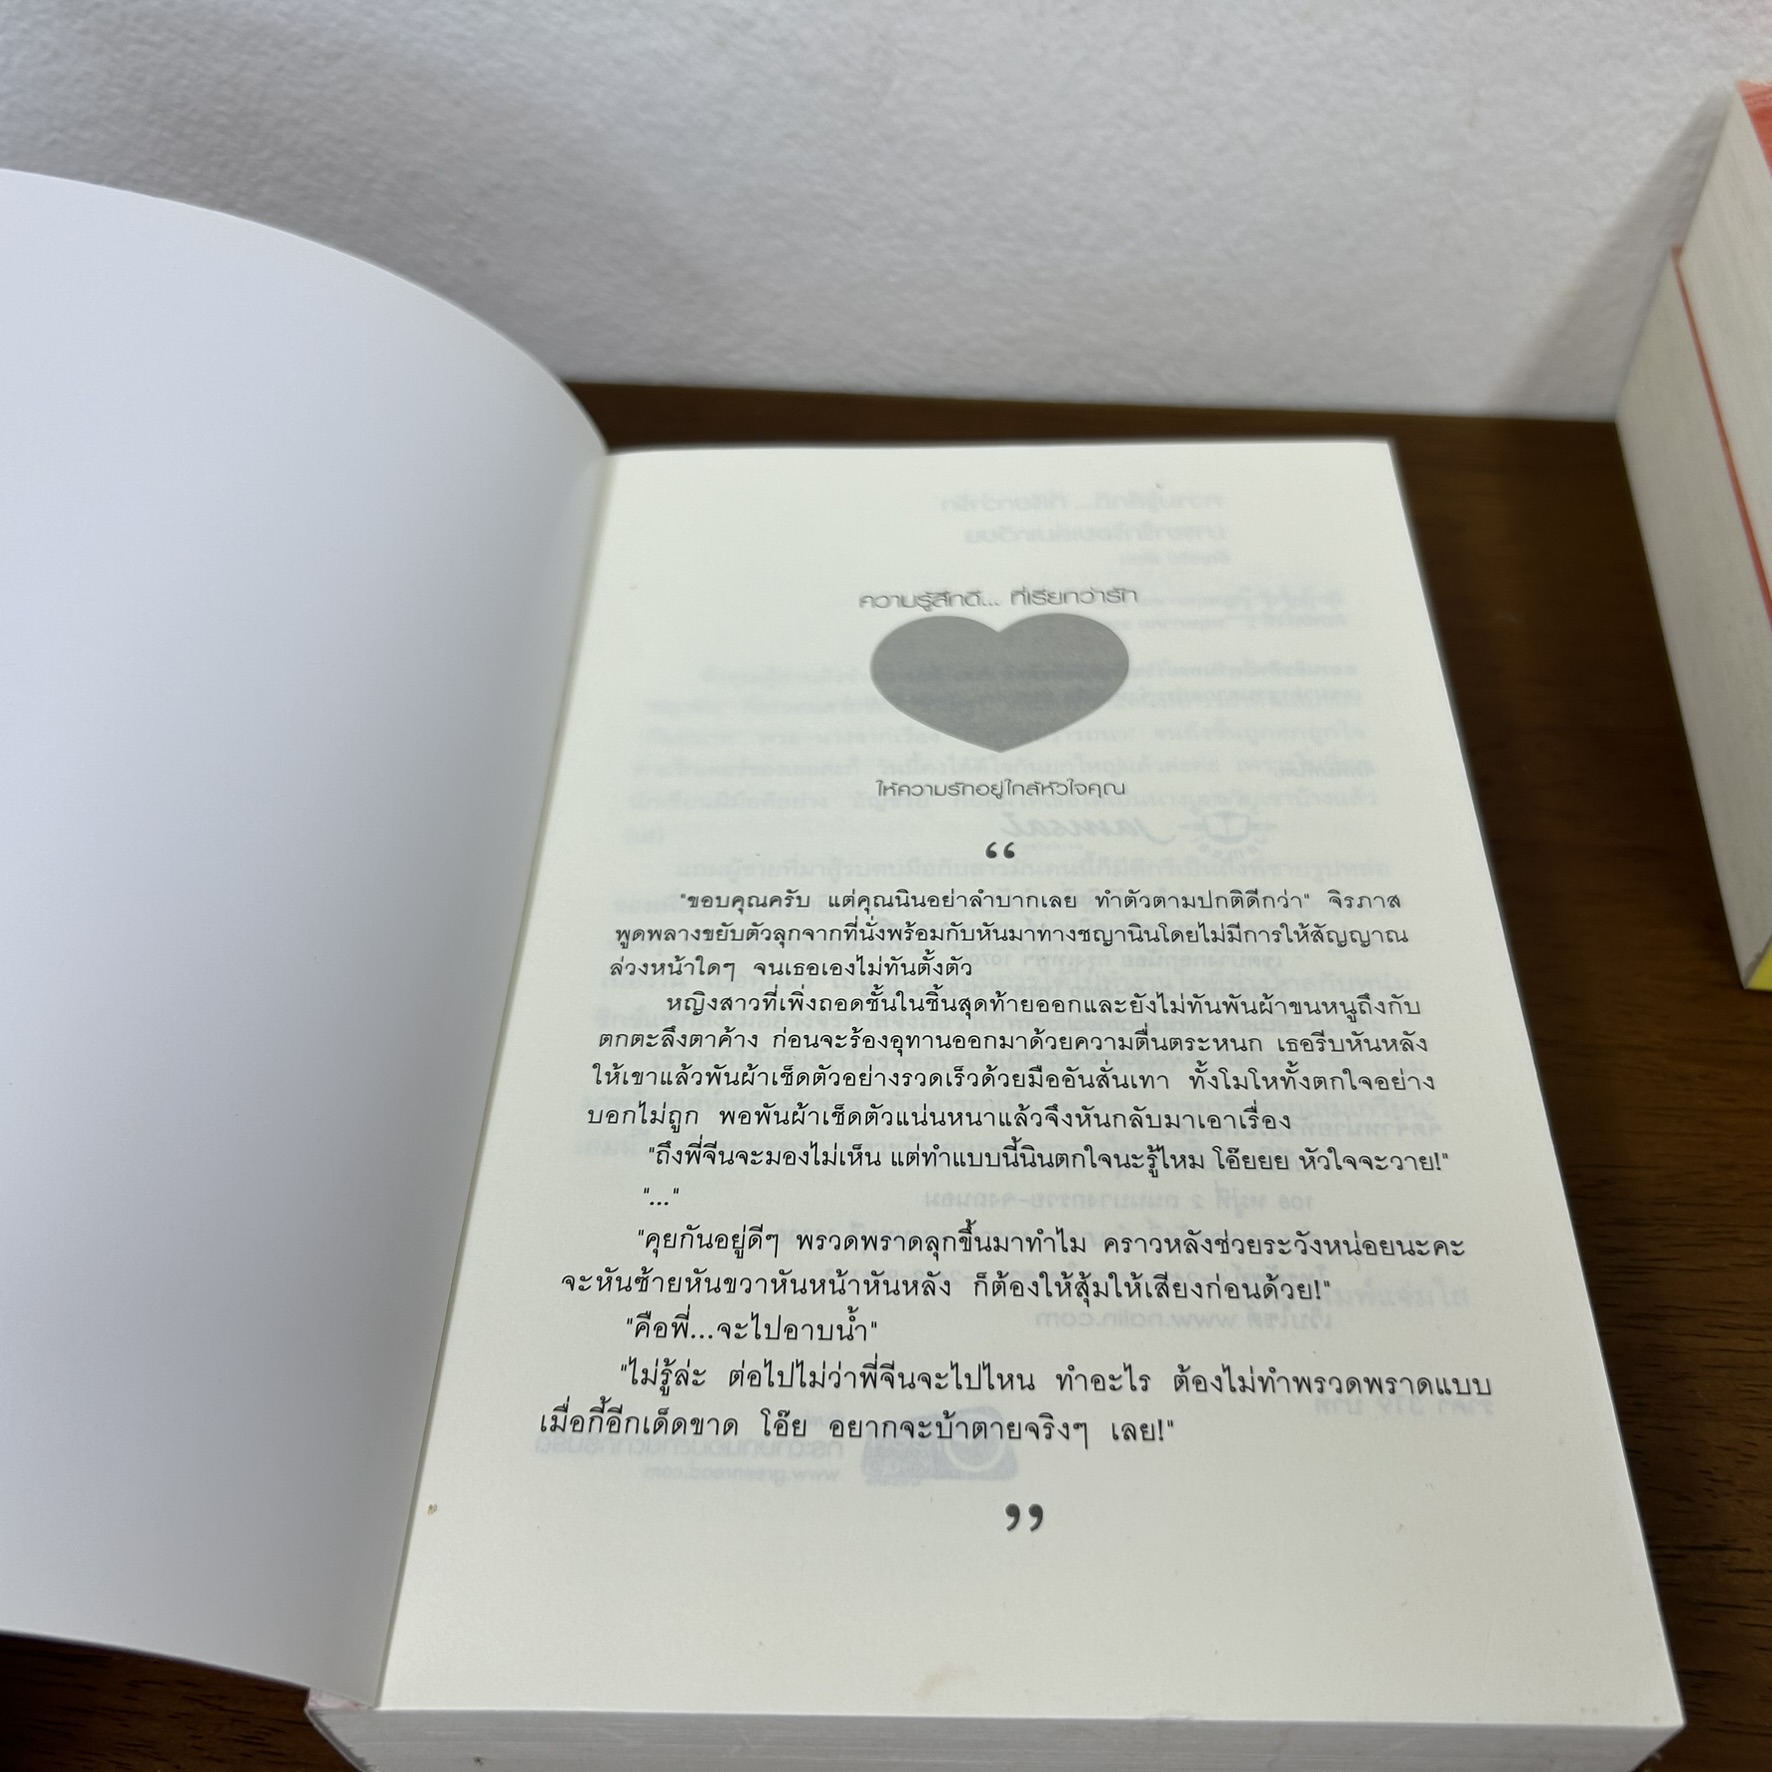 ความรู้สึกดี... ที่เรียกว่ารัก
ให้ความรักอยู่ใกล้หัวใจคุณ
“
"ขอบคุณครับ แต่คุณนินอย่าลำบากเลย ทำตัวตามปกติดีกว่า" จิรภาส
พูดพลางขยับตัวลุกจากที่นั่งพร้อมกับหันมาทางชญานินโดยไม่มีการให้สัญญาณ
ล่วงหน้าใดๆ จนเธอเองไม่ทันตั้งตัว
หญิงสาวที่เพิ่งถอดชั้นในชิ้นสุดท้ายออกและยังไม่ทันพันผ้าขนหนูถึงกับ
ตกตะลึงตาค้าง ก่อนจะร้องอุทานออกมาด้วยความตื่นตระหนก เธอรีบหันหลัง
ให้เขาแล้วพันผ้าเช็ดตัวอย่างรวดเร็วด้วยมืออันสั่นเทา ทั้งโมโหทั้งตกใจอย่าง
บอกไม่ถูก พอพันผ้าเช็ดตัวแน่นหนาแล้วจึงหันกลับมาเอาเรื่อง
"ถึงพี่จีนจะมองไม่เห็น แต่ทำแบบนี้นินตกใจนะรู้ไหม โอ๊ยยย หัวใจจะวาย!"
"..."
"คุยกันอยู่ดีๆ พรวดพราดลุกขึ้นมาทำไม คราวหลังช่วยระวังหน่อยนะคะ
จะหันซ้ายหันขวาหันหน้าหันหลัง ก็ต้องให้สุ้มให้เสียงก่อนด้วย!"
"คือพี่...จะไปอาบน้ำ"
"ไม่รู้ล่ะ ต่อไปไม่ว่าพี่จีนจะไปไหน ทำอะไร ต้องไม่ทำพรวดพราดแบบ
เมื่อกี้อีกเด็ดขาด โอ๊ย อยากจะบ้าตายจริงๆ เลย!"
”